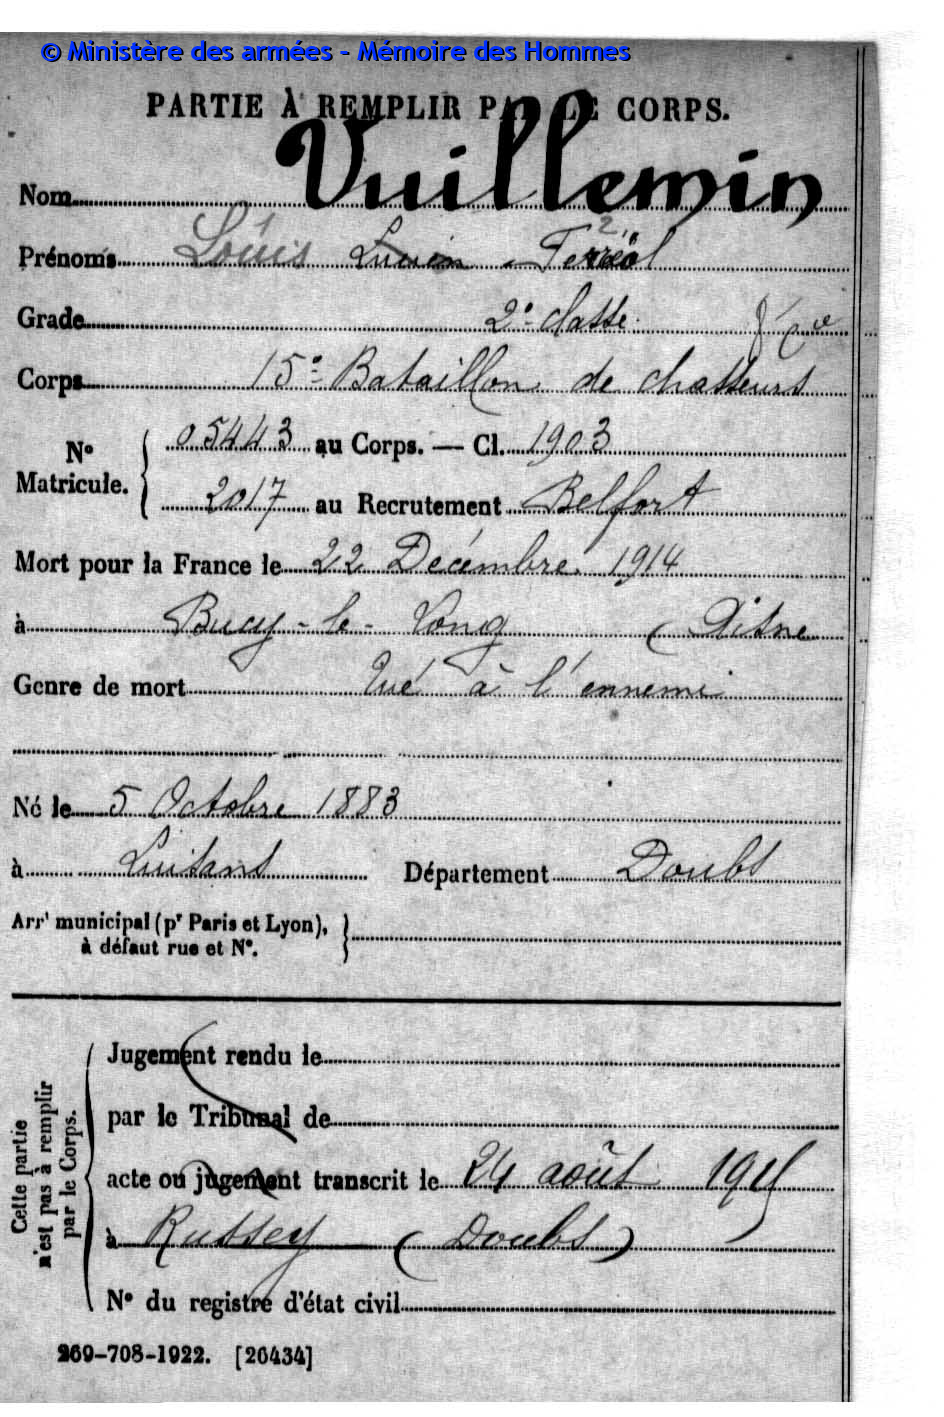 © Ministère des armées - Mémoire des Hommes
PARTIE À REMPLIR PAR LE CORPS.
Nom Vuillemin
Prénoms Louis Lucien Fereol
Grade 2e classe
Corps 15e Bataillon de chasseurs
No Matricule. 05443 au Corps. — Cl. 1903
2017 au Recrutement Belfort
Mort pour la France le 22 Décembre 1914
à Bucy-le-Long (Aisne
Genre de mort Tué à l'ennemi
Né le 5 Octobre 1883
à Luisans Département Doubs
Arrt municipal (pr Paris et Lyon),
à défaut rue et No.
Cette partie
n'est pas à remplir
par le Corps.
Jugement rendu le
par le Tribunal de
acte ou jugement transcrit le 24 août 1915
à Russey (Doubs)
No du registre d'état civil
269-708-1922. [26434]